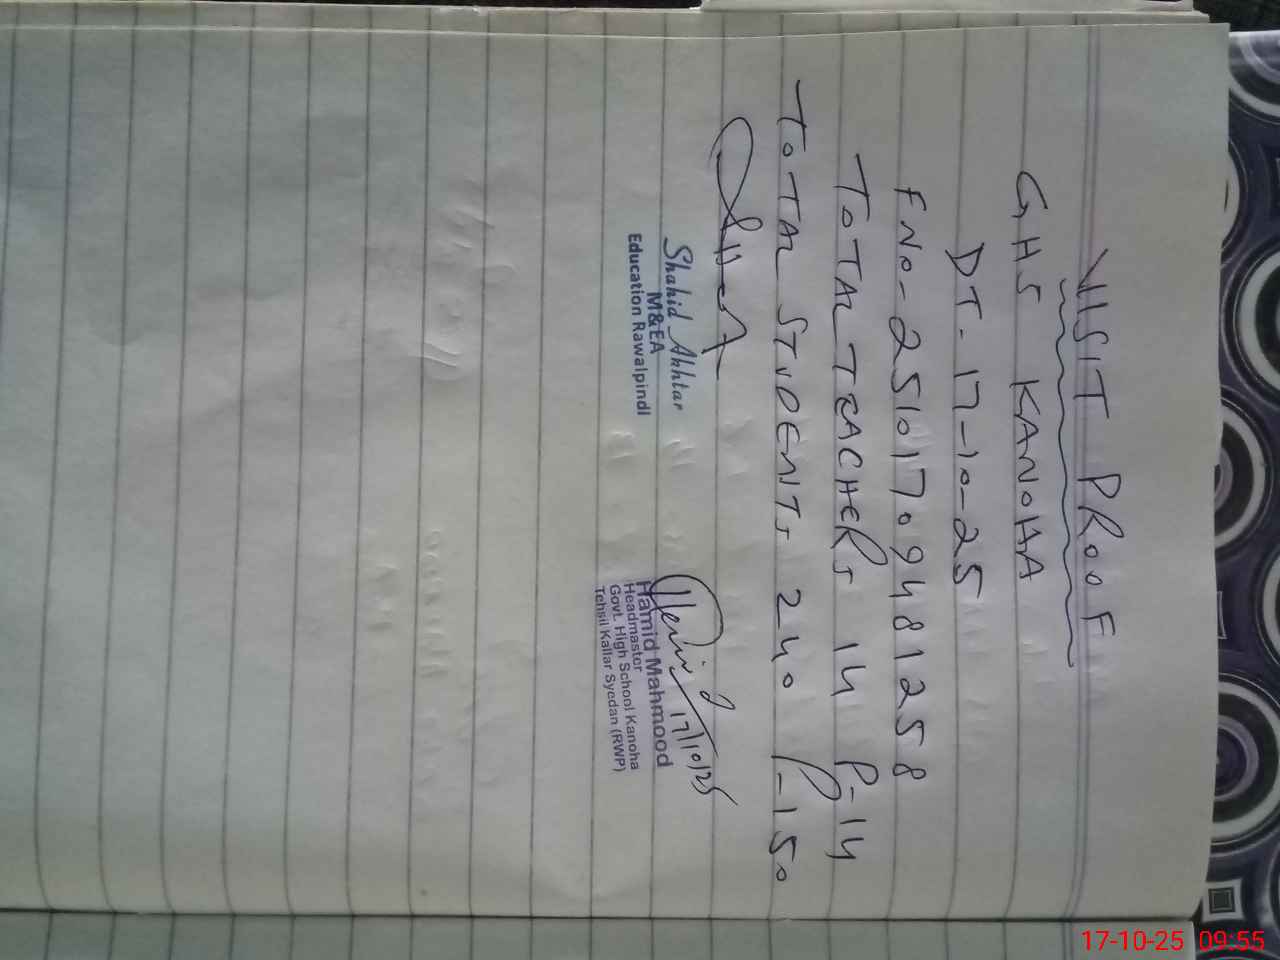 VISIT PROOF
GHS KANOHA
DT- 17-10-25
FNo-25101709481258
TOTAL TEACHERS 14 P-14
TOTAL STUDENTS 240 P-150
Shahid Akhtar
M&EA
Education Rawalpindi
Hamid
17/10/25
Hamid Mahmood
Headmaster
Govt. High School Kanoha
Tehsil Kallar Syedan (RWP)
17-10-25 09:55